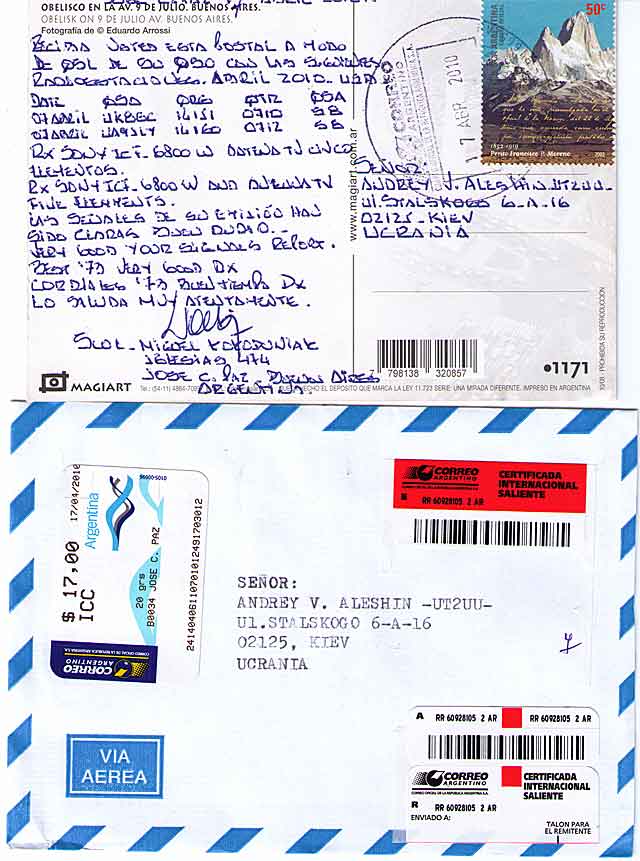 OBELISCO EN LA AV. 9 DE JULIO. BUENOS AIRES.
OBELISK ON 9 DE JULIO AV. BUENOS AIRES.
Fotografía de © Eduardo Arrossi
RECIBA USTED ESTA POSTAL A MODO
DE QSL DE SU QSO CON LAS SIGUIENTES
RADIOESTACIONES. ABRIL 2010. USB
DATE QSA QRG QTR QSA
07 ABRIL UK8GC 14151 0710 58
07 ABRIL UA9SLY 14160 0712 58
RX SONY ICF-6800 W ANTENA TV CINCO
ELEMENTOS.
RX SONY ICF-6800 W AND ANTENA TV
FIVE ELEMENTS.
LAS SEÑALES DE SU EMISIÓN HAN
SIDO CLARAS BUEN AUDIO.-
VERY GOOD YOUR SIGNALS REPORT.
BEST '73 VERY GOOD DX
CORDIALES '73 BUEN TIEMPO DX
LO SALUDA MUY ATENTAMENTE.
SWL - MIGUEL
IGLESIAS 474
JOSE C. PAZ BUENOS AIRES
ARGENTINA.
MAGIART
www.magiart.com.ar
CORREO
ARGENTINO
17 ABR 2010
50c
ARGENTINA
1852-1919
Perito Francisco P. Moreno
SEÑOR
ANDREY V. ALESHIN UT2UU-
Ul. STALSKOGO 6-A-16
02125-KIEV
UCRANIA
9 798138 320857
•1171
HECHO EL DEPOSITO QUE MARCA LA LEY 11.723 SERIE: UNA MIRADA DIFERENTE. IMPRESO EN ARGENTINA
PROHIBIDA SU REPRODUCCION
17/04/2010
Argentina
$ 17,00
ICC
20 grs
B0034 JOSE C. PAZ
2414040611070101249170301​2
CORREO
ARGENTINO
CORREO OFICIAL DE LA REPUBLICA ARGENTINA S.A.
CORREO
ARGENTINO
CERTIFICADA
INTERNACIONAL
SALIENTE
R RR 60928105 2 AR
SEÑOR:
ANDREY V. ALESHIN -UT2UU-
Ul.STALSKOGO 6-A-16
02125, KIEV
UCRANIA
VIA
AEREA
A RR 60928105 2 AR RR 60928105 2 AR
CORREO
ARGENTINO
CORREO OFICIAL DE LA REPUBLICA ARGENTINA S.A.
CERTIFICADA
INTERNACIONAL
SALIENTE
R RR 60928105 2 AR
ENVIADO A:
TALON PARA
EL REMITENTE